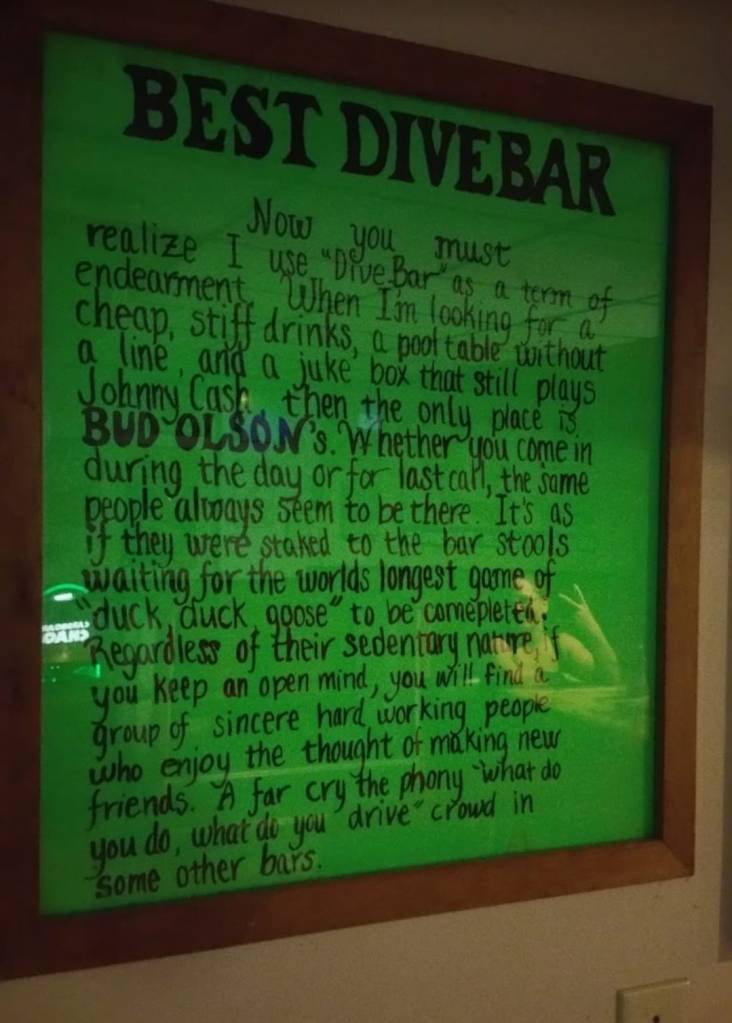 BEST DIVE BAR
Now you must
realize I use "Dive Bar" as a term of
endearment. When I'm looking for a
cheap, stiff drinks, a pool table without
a line, and a juke box that still plays
Johnny Cash, then the only place is
BUD OLSON's. Whether you come in
during the day or for last call, the same
people always seem to be there. It's as
if they were staked to the bar stools
waiting for the worlds longest game of
"duck, duck, goose" to be comepleted.
Regardless of their sedentary nature, if
you keep an open mind, you will find a
group of sincere hard working people
who enjoy the thought of making new
friends. A far cry the phony "what do
you do, what do you drive" crowd in
some other bars.